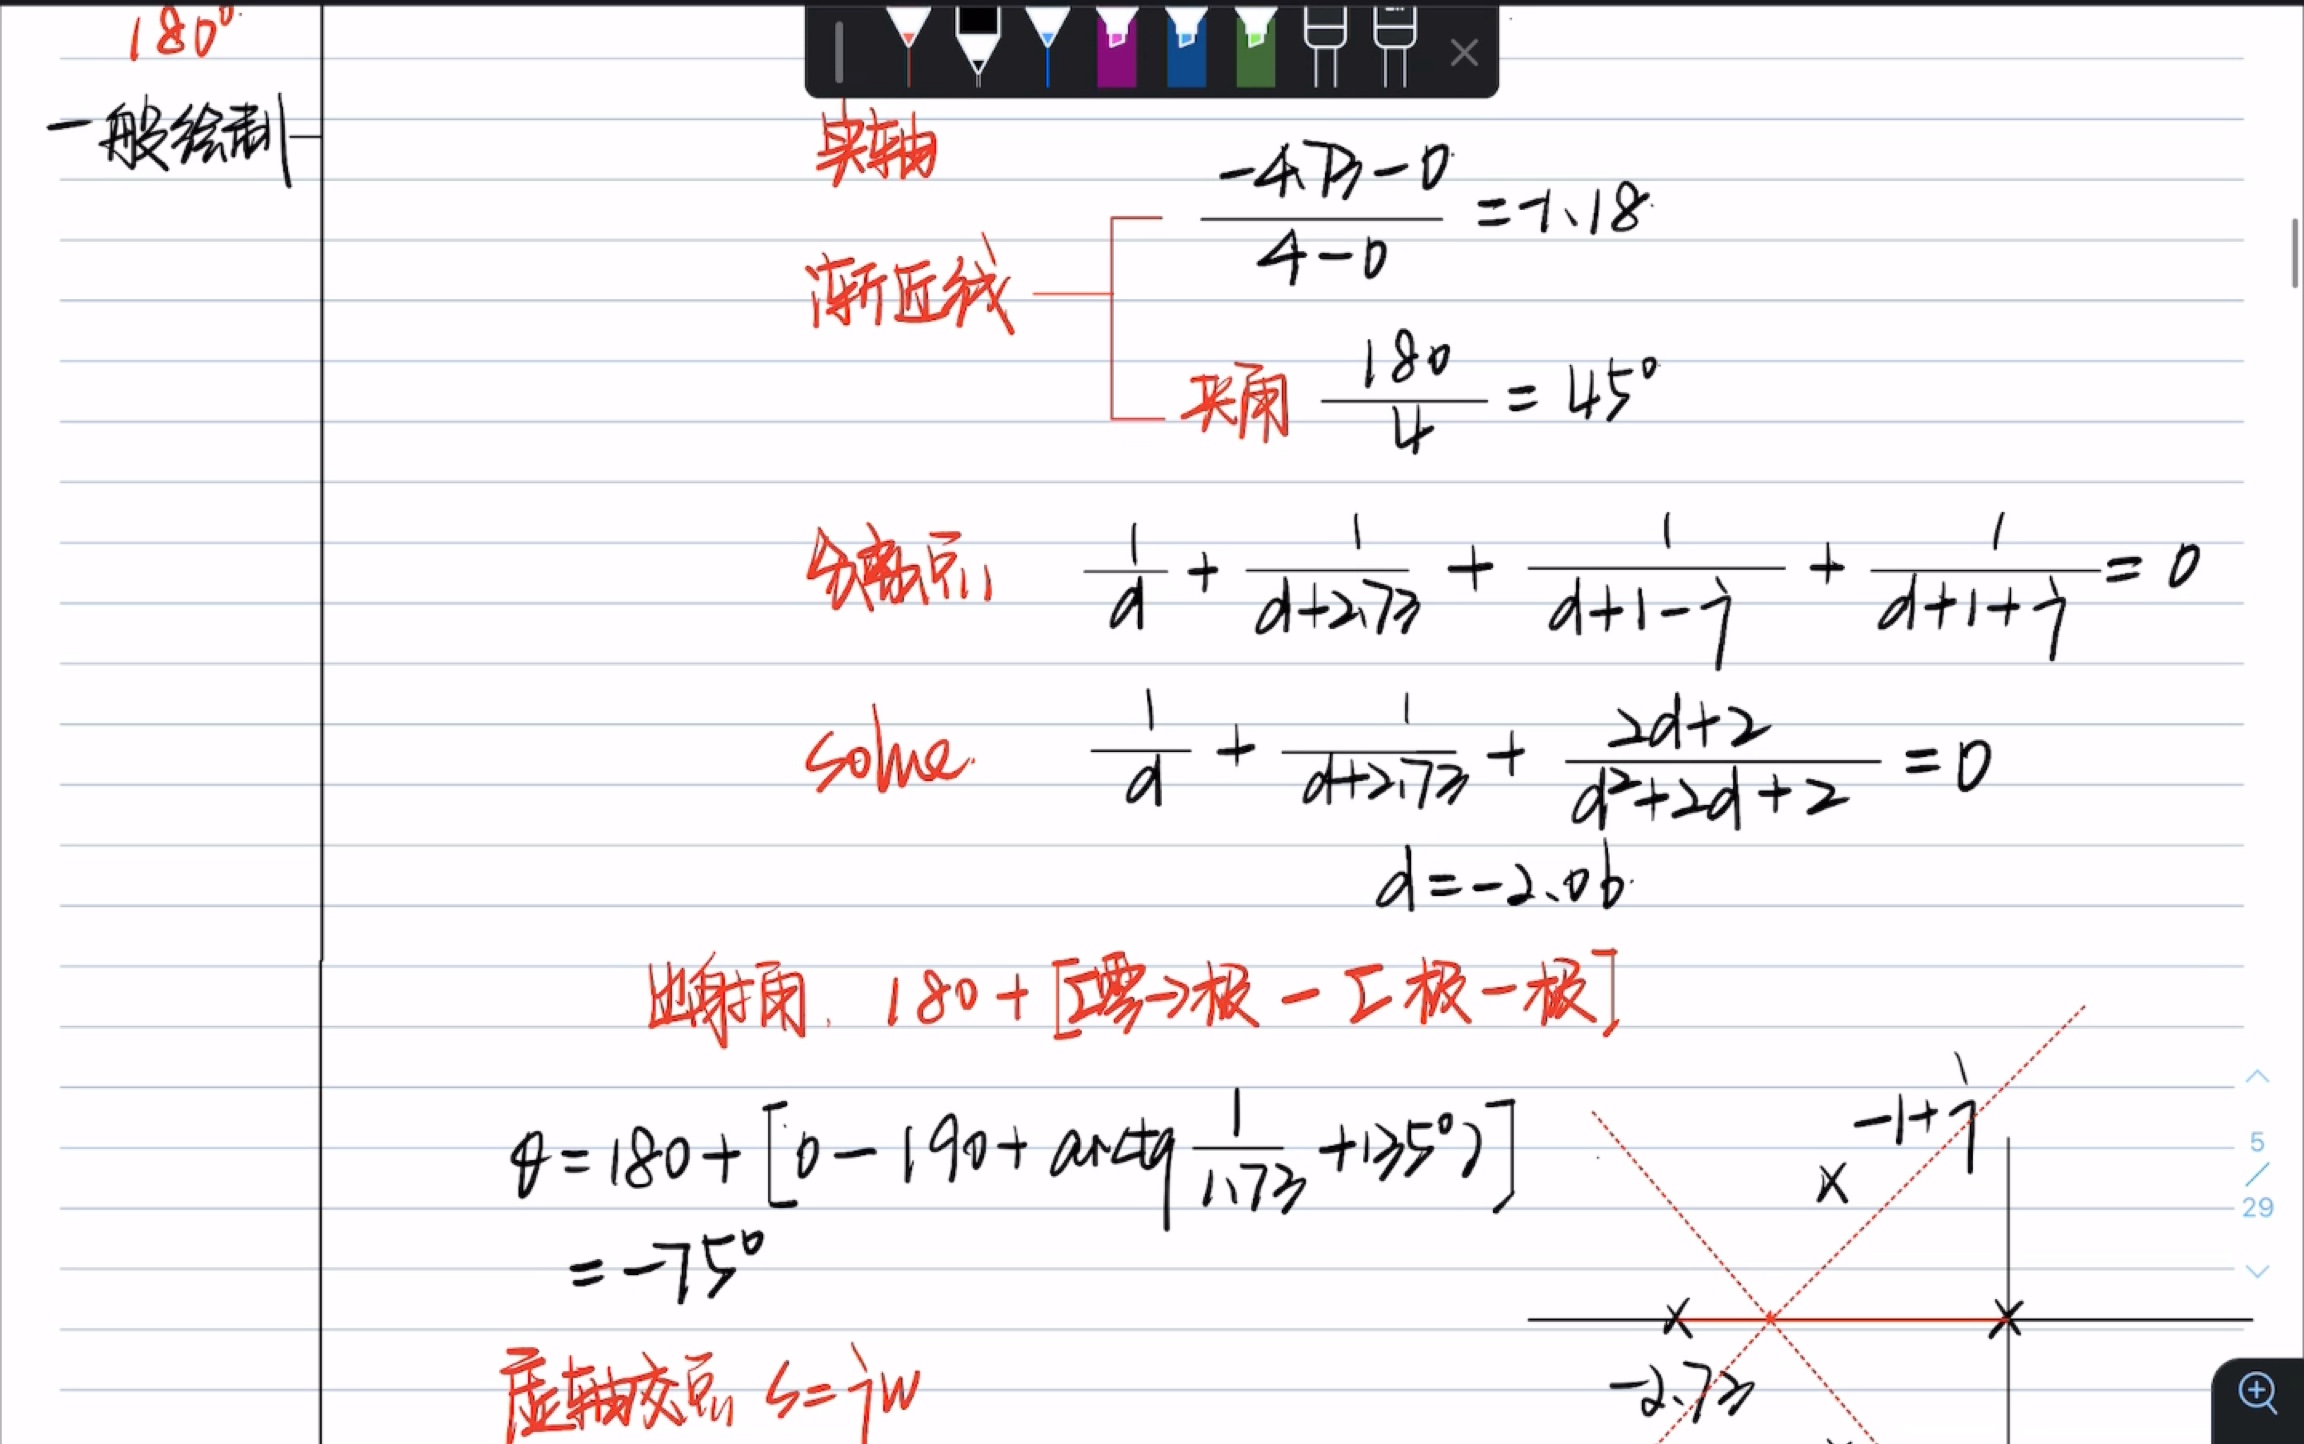 180°
一般绘制
实轴
渐近线
(-4.73-0)/(4-0) = -1.18
夹角 180/4 = 45°
分离点 1/d + 1/(d+2.73) + 1/(d+1-j) + 1/(d+1+j) = 0
solve 1/d + 1/(d+2.73) + (2d+2)/(d²+2d+2) = 0
d=-2.06
出射角. 180+[Σ零→极-Σ极-极]
θ=180+[0-(90+arctg 1/1.73 +135°)]
=-75°
-1+j
-2.73
虚轴交点 s=jw
5
/
29